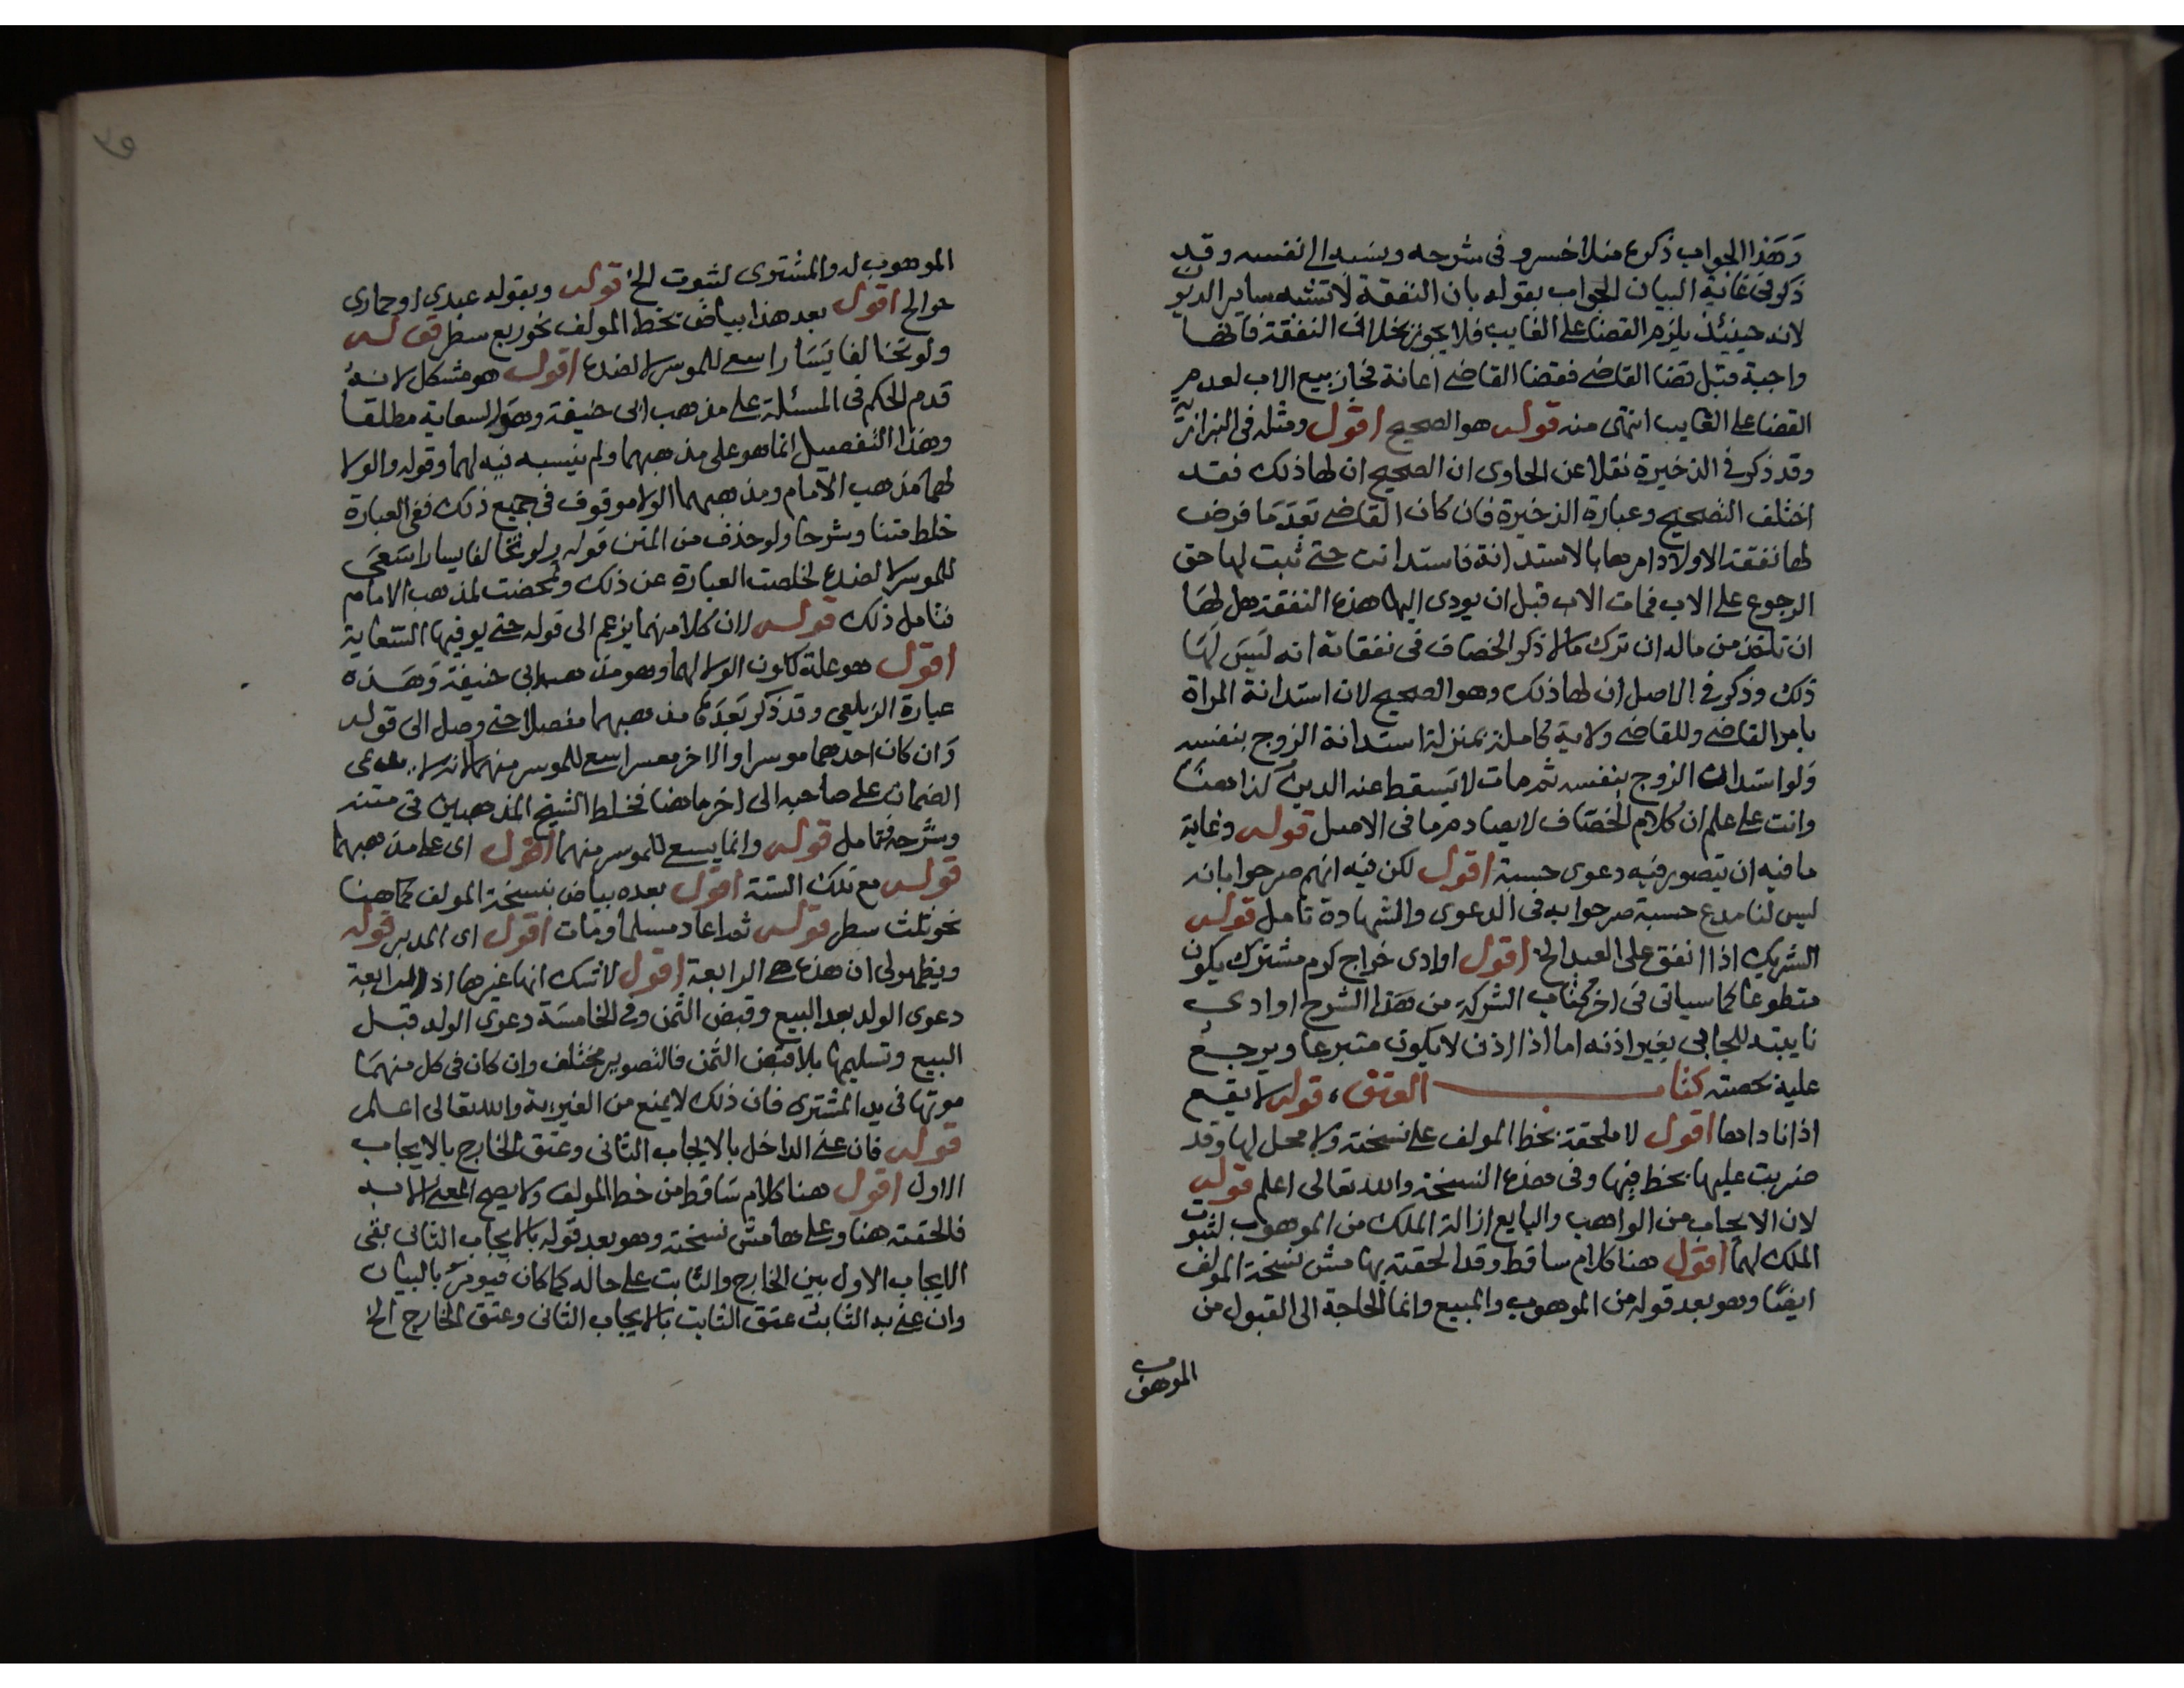 وهذا الجواب ذكره منلا خسرو في شرحه ونسبه الى نفسه وقد
ذكر في غاية البيان الجواب بقوله بان النفقة لا تشبه ساير الديون
لانه حينيذ يلزم القضا على الغايب فلا يجوز بخلاف النفقة فانها
واجبة قبل قضا القاضي فقضا القاضي اعانة فجاز بيع الاب لعدم
القضا على الغايب انتهى منه قوله هو الصحيح اقول ومثله في البزازية
وقد ذكر في الذخيرة نقلا عن الحاوى ان الصحيح ان لها ذلك فقد
اختلف التصحيح وعبارة الذخيرة فان كان القاضي بعد ما فرض
لها نفقة الاولاد امرها بالاستدانة فاستدانت حتى ثبت لها حق
الرجوع على الاب فمات الاب قبل ان يودى اليها هذه النفقة هل لها
ان تاخذ من ماله ان ترك مالا ذكر الخصاف في نفقاته انه ليس لها
ذلك وذكر في الاصل ان لها ذلك وهو الصحيح لان استدانة المراة
بامر القاضي وللقاضي ولاية كاملة بمنزلة استدانة الزوج بنفسه
ولو استدان الزوج بنفسه ثم مات لا يسقط عنه الدين كذا هنا
وانت على علم ان كلام الخصاف لا يصادم ما في الاصل قوله وغاية
ما فيه ان يتصور فيه دعوى حسبة اقول لكن فيه انهم صرحوا بانه
ليس لنا مدع حسبة صرحوا به في الدعوى والشهادة تامل قوله
الشريك اذا انفق على العبد الخ اقول او ادى خراج كرم مشترك يكون
متطوعا كما سياتى في اخر كتاب الشركة من هذا الشرح او ادى
نايبته للجابى بغير اذنه اما اذا اذن لا يكون متبرعا ويرجع
عليه بحصته كتاب العتق، قوله لا يقع
اذا ناداها اقول لا ملحقة بخط المولف على نسخته ولا محل لها وقد
ضربت عليها بخط فيها وفى هذه النسخة والله تعالى اعلم قوله
لان الايجاب من الواهب والبايع ازالة الملك من الموهوب لثبوت
الملك لهما اقول هنا كلام ساقط وقد الحقته بهامش نسخة المولف
ايضا وهو بعد قوله من الموهوب والمبيع وانما الحاجة الى القبول من
الموهوب
الموهوب له والمشترى لثبوت الخ قوله وبقوله عبدى او حمارى
حر الخ اقول بعد هذا بياض بخط المولف نحو ربع سطر قوله
ولو تخالفا يسارا سعى للموسر لا لضده اقول هو مشكل لانه
قدم الحكم في المسئلة على مذهب ابى حنيفة وهو السعاية مطلقا
وهذا التفصيل انما هو على مذهبهما ولم ينسبه فيه لهما وقوله والولا
لهما مذهب الامام ومذهبهما الولا موقوف في جميع ذلك ففى العبارة
خلط متنا وشرحا ولو حذف من المتن قوله ولو تخالفا يسارا سعى
للموسر لا لضده لخلصت العبارة عن ذلك وتمحضت لمذهب الامام
فتامل ذلك قوله لان كلا منهما يزعم الى قوله حتى يوفيها السعاية
اقول هو علة لكون الولا لهما وهو مذهب ابى حنيفة وهذه
عبارة الزيلعى وقد ذكر بعدها مذهبهما مفصلا حتى وصل الى قوله
وان كان احدهما موسرا والاخر معسرا سعى للموسر منهما لانه لا يدعى
الضمان على صاحبه الى اخر ما هنا فخلط الشيخ المذهبين في متنه
وشرحه فتامل قوله وانما يسعى للموسر منهما اقول اى على مذهبهما
قوله مع تلك الستة اقول بعده بياض بنسخة المولف كما هنا
نحو ثلث سطر قوله ثم اعاد مسلما ومات اقول اى المدبر قوله
ويظهر لى ان هذه هى الرابعة اقول لا شك انها غيرها اذ الرابعة
دعوى الولد بعد البيع وقبض الثمن وفى الخامسة دعوى الولد قبل
البيع وتسليمها بلا قبض الثمن فالتصوير مختلف وان كان في كل منهما
موتها في يد المشترى فان ذلك لا يمنع من الغيرية والله تعالى اعلم
قوله فان عنى الداخل بالايجاب الثانى وعتق الخارج بالايجاب
الاول اقول هنا كلام ساقط من خط المولف ولا يصح المعنى الا به
فالحقته هنا وعلى هامش نسخته وهو بعد قوله بالايجاب الثانى بقى
الايجاب الاول بين الخارج والثابت على حاله كما كان فيومر بالبيان
وان عنى به الثابت عتق الثابت بالايجاب الثانى وعتق الخارج الخ